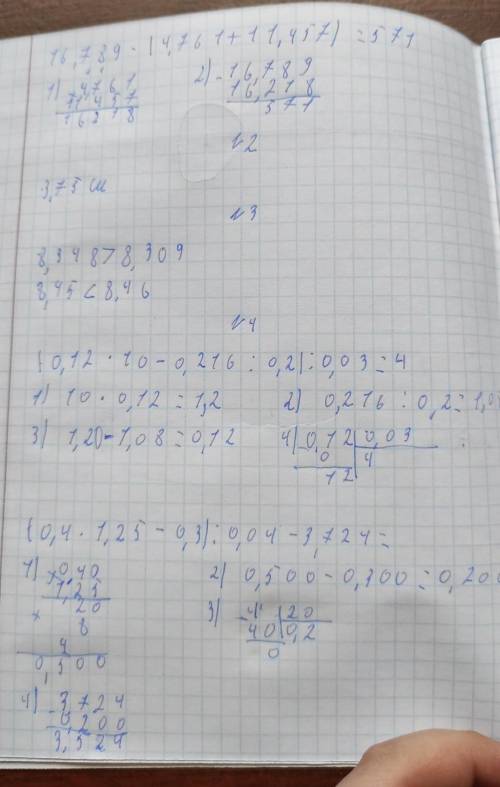 16,789 - (4,761+11,457) = 571
1) 4,761 2) - 16,789
11,457 16,218
16218 571
№2
3,75 см
№3
8,348 > 8,309
8,45 < 8,46
№4
(0,12 · 10 - 0,216 : 0,2) : 0,03 = 4
1) 10 · 0,12 = 1,2 2) 0,216 : 0,2 = 1,08
3) 1,20 - 1,08 = 0,12 4) - 0,12 | 0,03
0 4
12
(0,4 · 1,25 - 0,3) : 0,04 - 3,724 =
1) × 0,40 2) 0,500 - 0,300 = 0,200
1,25
20 3) - 4 | 20
+ 8 40 0,2
4 0
0,500
4) - 3,724
0,200
3,524